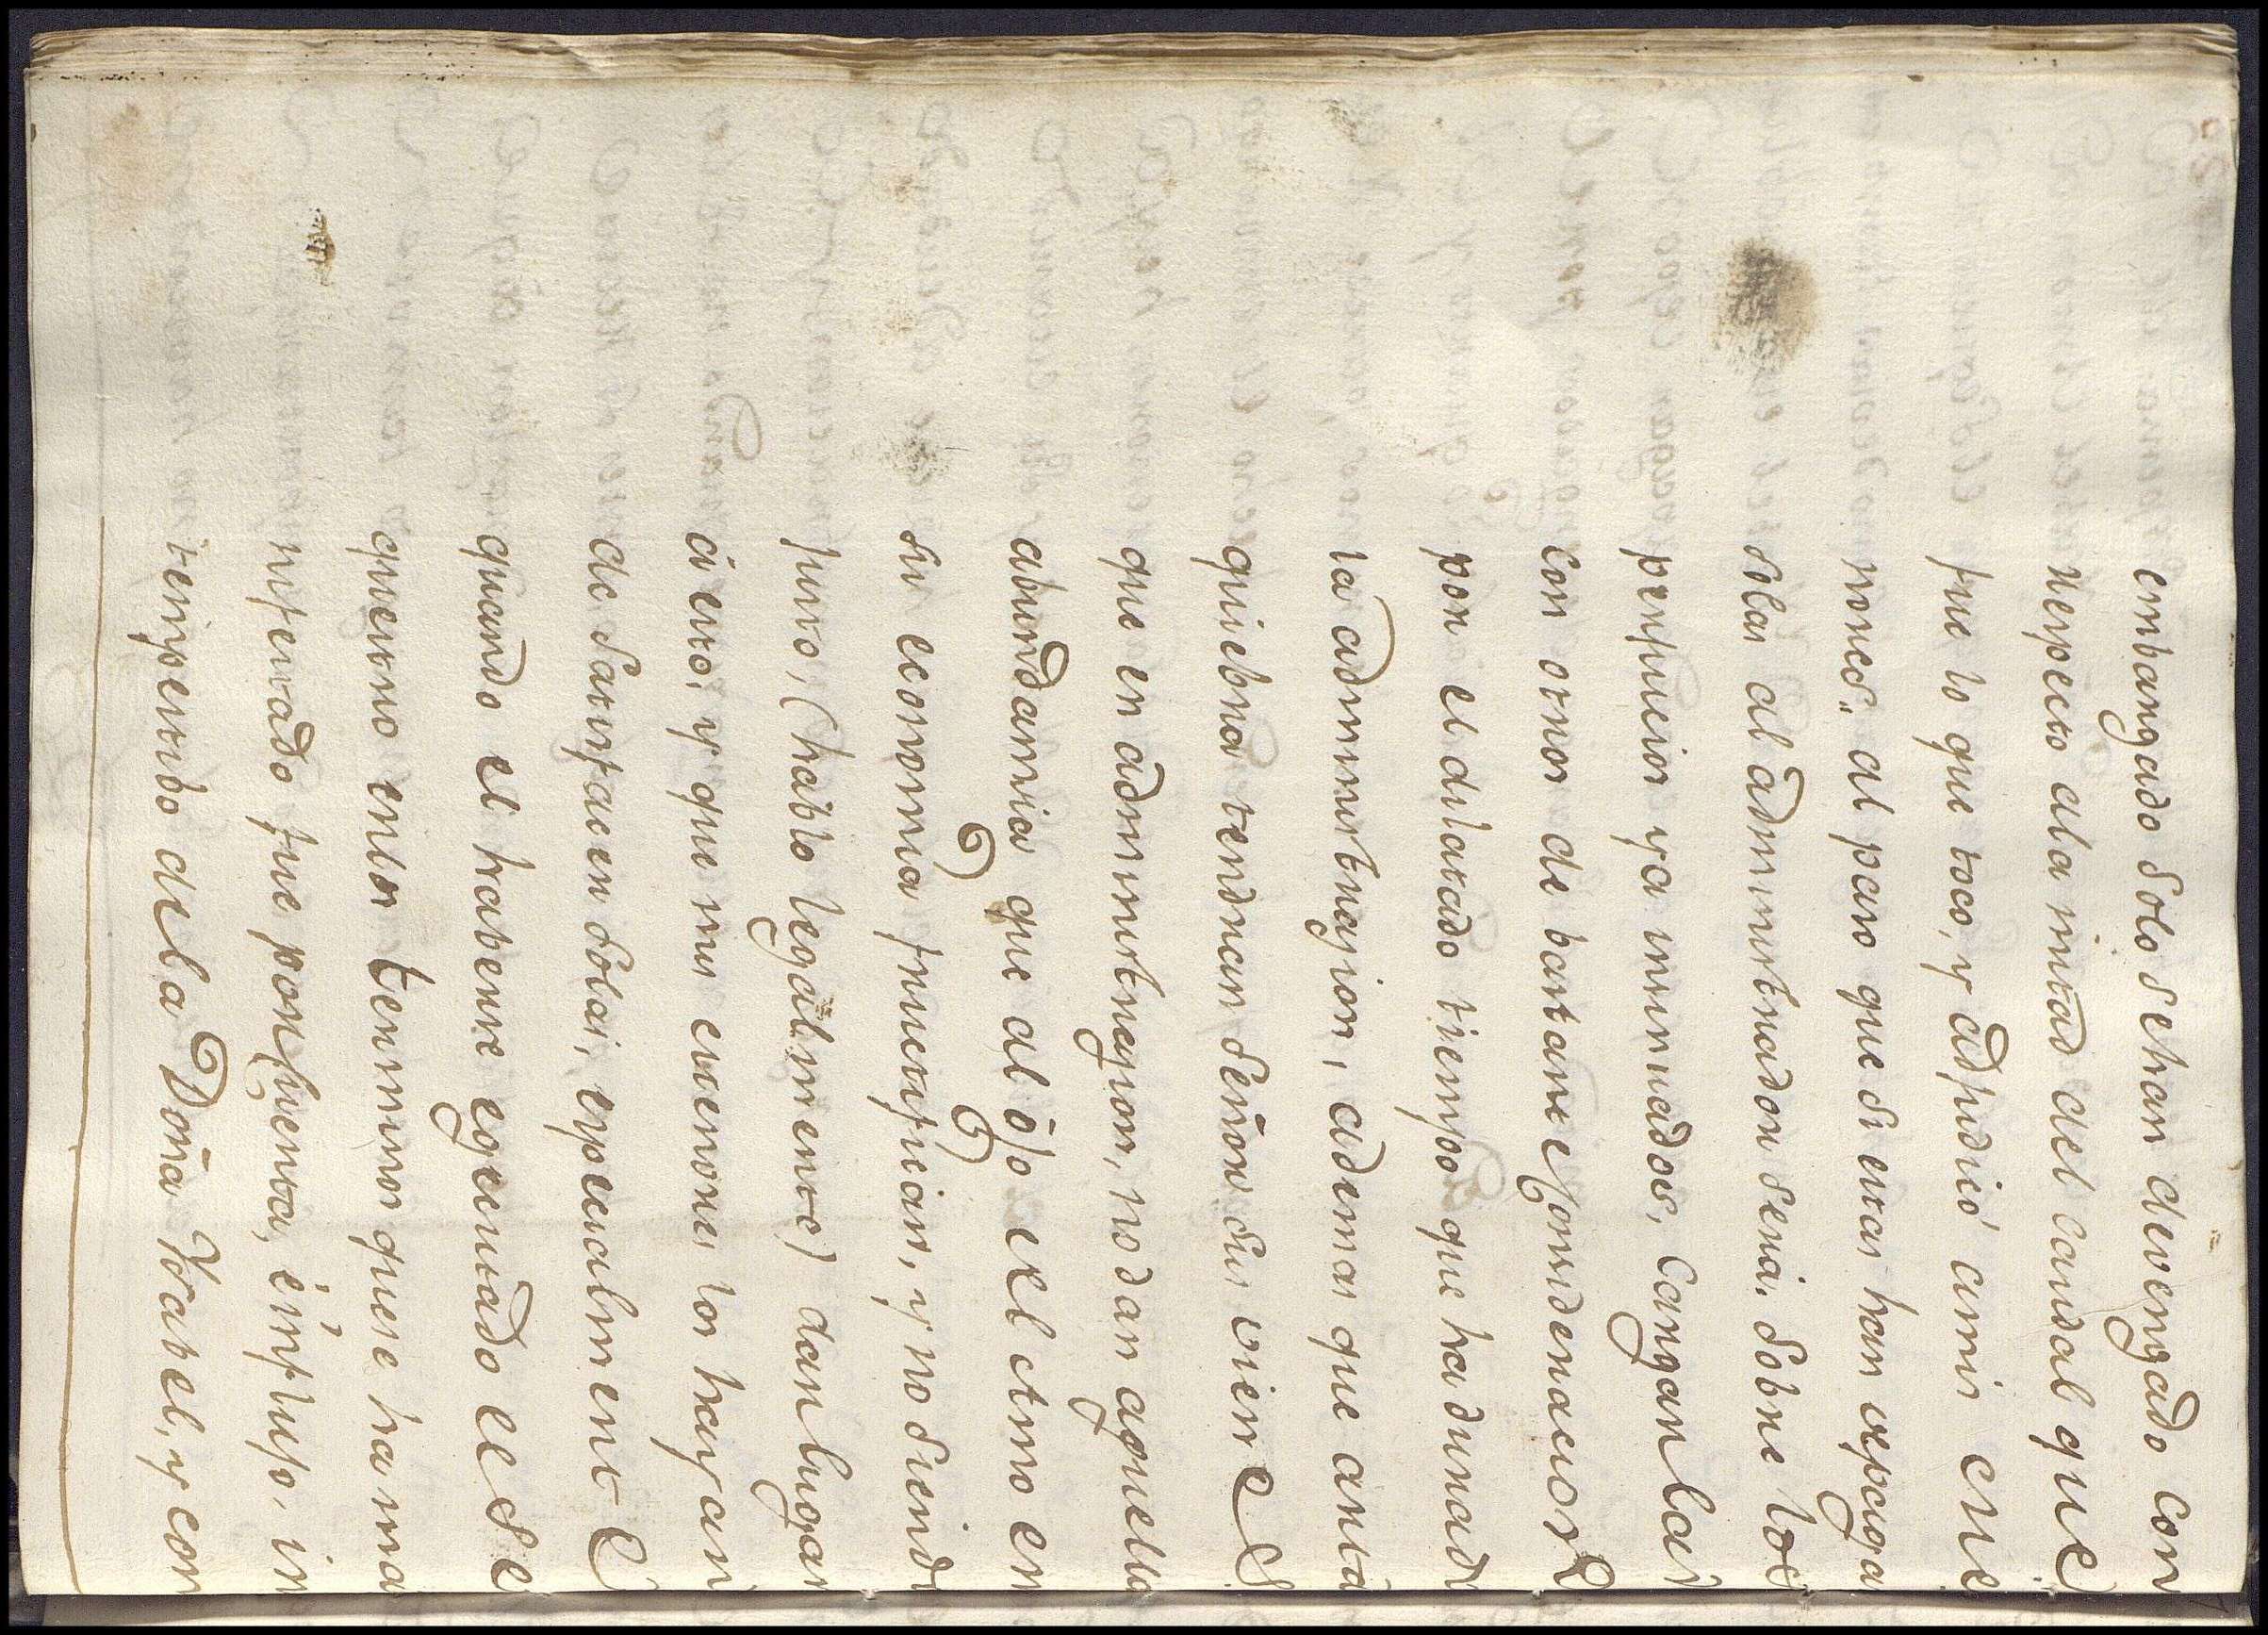 embargado solo se han devengado con
respecto ala mitad del caudal que
fue lo que toco, y adjudicó ami cre
los al paso que si estas han se paga
solas al administrador seria, sobre los
perjuicios ya insinuados, Cargarlas
con otros de bastante Considerazion
por el dilatado tiempo que ha durado
la administrazion, ademas que anta
quiebra tendrian Señor sus viene S
que en administrazion, no dan aquella
abundamcia que al ojo del Amo en
su economia fructifican, y no siendo
justo, (hablo legalmente) dan lugar
á esto, y que mis exenores los hayan
de satisfacer solas, especialmente
quando el haberse egecutado ese Se
questro enlos terminos que se ha ma
nifestado fue por fuerza, é injusto, in
tempestibo dela Doña Ysabel, y con